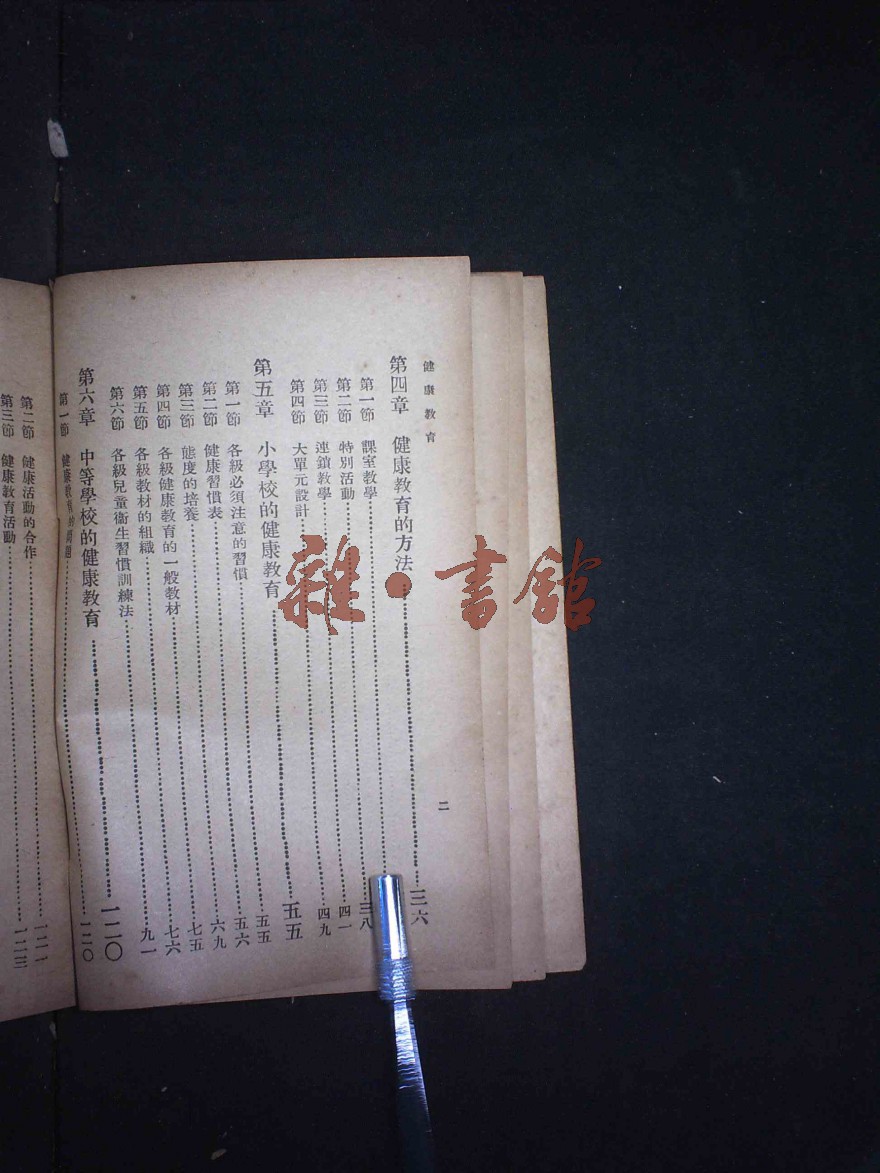 健康教育
二
第四章 健康教育的方法……三六
第一節 課室教學……
第二節 特別活動……三八
第三節 連鎖教學……四一
第四節 大單元設計……四九
第五章 小學校的健康教育……五五
第一節 各級必須注意的習慣……五五
第二節 健康習慣表……五六
第三節 態度的培養……六九
第四節 各級健康教育的一般教材……七五
第五節 各級教材的組織……七六
第六節 各級兒童衞生習慣訓練法……九一
第六章 中等學校的健康教育……一二〇
第一節 健康教育的問題……一二〇
第二節 健康活動的合作……
第三節 健康教育活動……一二三
雜·書館